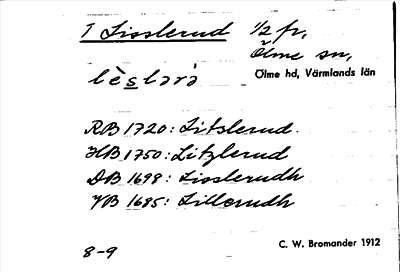 1 Lisslerud 1/2 fr,
Ölme sn,
lèslərə̀
Ölme hd, Värmlands län
RB 1720: Litslerud.
HB 1750: Litzlerud
DB 1698: Lisslerudh
VB 1685: Lillerudh
8-9
C. W. Bromander 1912